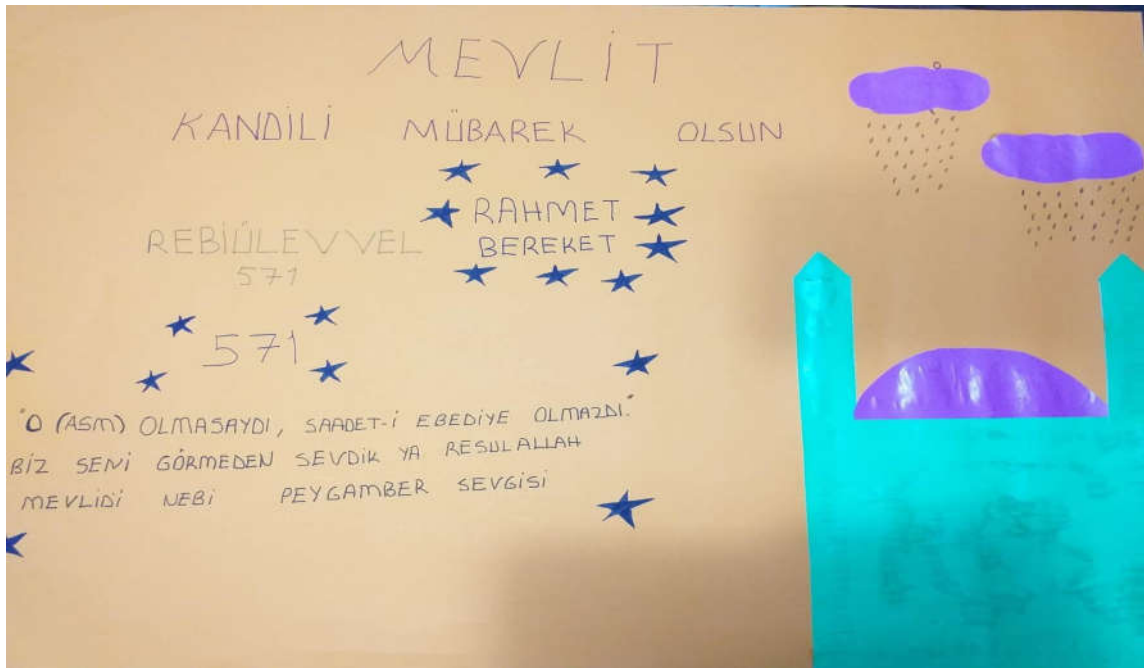 MEVLİT
KANDİLİ MÜBAREK OLSUN
RAHMET
BEREKET
REBİÜLEVVEL
571
571
"O (ASM) OLMASAYDI, SAADET-İ EBEDİYE OLMAZDI."
BİZ SENİ GÖRMEDEN SEVDİK YA RESULALLAH
MEVLİDİ NEBİ PEYGAMBER SEVGİSİ